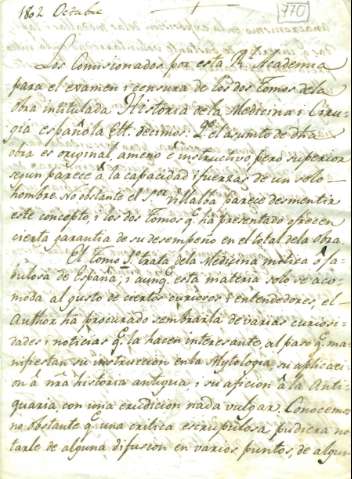 1802 Octubre
770
Los Comisionados por esta Rl. Academia
para el examen i censura de los dos tomos de la
obra intitulada Historia de la Medicina i Ciru-
gia española &. decimos: Que el asunto de dha
obra es original, ameno è instructivo pero superior
segun parece à la capacidad i fuerzas de un solo
hombre. No obstante el Sor. Villalba parece desmentir
este concepto, i los dos tomos q. ha presentado ofrecen
cierta garantia de su desempeño en el total de la obra.
El tomo 1o. trata de la Medicina mitica ò fa-
bulosa de España; i aunq. esta materia solo se aco-
moda al gusto de ciertos curiosos i entendedores, el
Author ha procurado sembrarla de varias curiosi-
dades i noticias q. la hacen interesante, al paso q. ma-
nifiestan su instruccion en la Mytologia, su aplicaci-
on à nra historia antigua, i su aficion à la Anti-
quaria con una erudicion nada vulgar. Conocemos
no obstante q. una critica escrupulosa, pudiera no-
tarle de alguna difusion en varios puntos, de algun